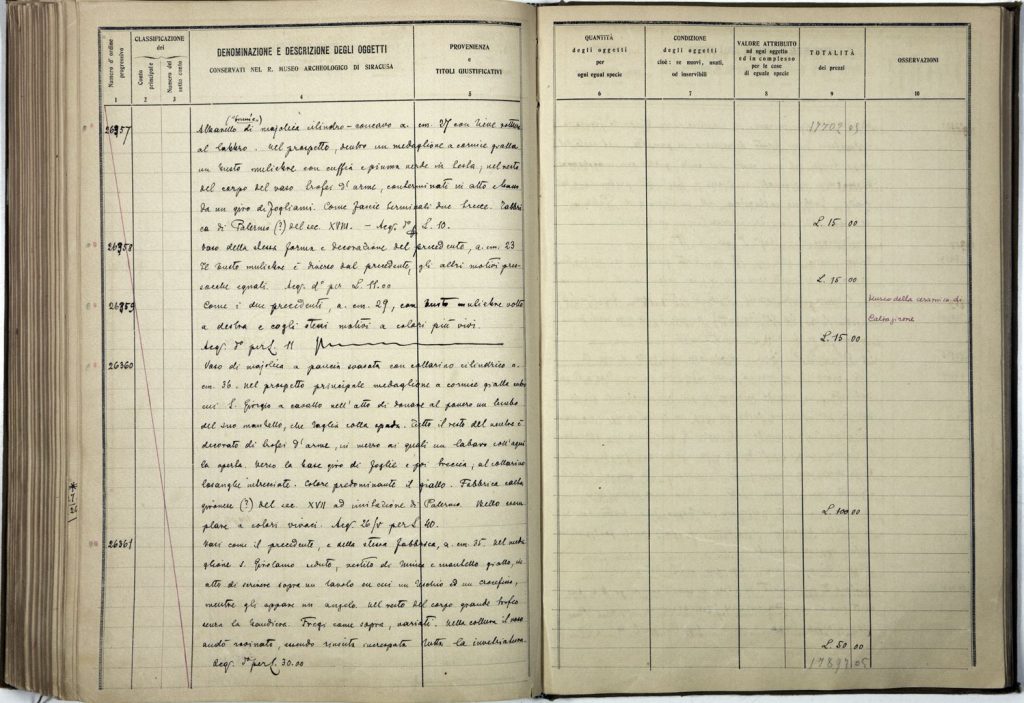 Numero d'ordine progressivo
CLASSIFICAZIONE
dei
Conto principale
Numero del sotto conto
DENOMINAZIONE E DESCRIZIONE DEGLI OGGETTI
CONSERVATI NEL R. MUSEO ARCHEOLOGICO DI SIRACUSA
PROVENIENZA
e
TITOLI GIUSTIFICATIVI
1 2 3 4 5
26357
Albarello di majolica cilindro-concavo a. cm. 27 con lievi rotture
al labbro. Nel prospetto, dentro un medaglione a cornice gialla
un busto muliebre con cuffia e piuma verde in testa; nel resto
del corpo del vaso trofei d'arme, conterminati in alto e
da un giro di fogliami. Come fascie terminali due trecce. Fabbri
ca di Palermo (?) del sec. XVII. – Acq. L. 10.
26358
Vaso della stessa forma e decorazione del precedente, a. cm. 23
Il busto muliebre è diverso dal precedente, gli altri motivi pres-
socchè eguali. Acq. d° per L. 11.00
26359
Come i due precedenti, a. cm. 29, con busto muliebre volto
a destra e cogli stessi motivi a colori più vivi.
Acq. d° per L. 11
26360
Vaso di majolica a pancia svasata con collarino cilindrico a.
cm. 36. Nel prospetto principale medaglione a cornice gialla entro
cui S. Giorgio a cavallo nell'atto di donare al povero un lembo
del suo mantello, che taglia colla spada. Tutto il resto del ventre è
decorato di trofei d'arme, in mezzo ai quali un labaro coll'aqui
la aperta. Verso la base giro di foglie e poi treccia; al collarino
losanghe intrecciate. Colore predominante il giallo. Fabbrica calta
gironese (?) del sec. XVII ad imitazione di Palermo. Bello esem
plare a colori vivaci. Acq. 26/V per L. 40.
26361
Vaso come il precedente, e della stessa fabbrica, a. cm. 35. Nel meda
glione S. Girolamo seduto, vestito di tunica e mantello giallo, in
atto di scrivere sopra un tavolo su cui un teschio ed un crocefisso,
mentre gli appare un angelo. Nel resto del corpo grande trofeo
senza la bandiera. Fregi come sopra, variati. Nella cottura il vaso
andò rovinato, essendo riuscita increspata tutta la invetriatura.
Acq. d° per L. 30.00
QUANTITÀ
degli oggetti
per
ogni egual specie
CONDIZIONE
degli oggetti
cioè: se nuovi, usati,
od inservibili
VALORE ATTRIBUITO
ad ogni oggetto
ed in complesso
per le cose
di eguale specie
TOTALITÀ
dei prezzi
OSSERVAZIONI
6 7 8 9 10
17702 05
L. 15 00
L. 15 00
Museo della ceramica di
Caltagirone
L. 15 00
L. 100 00
L. 50 00
17897 05